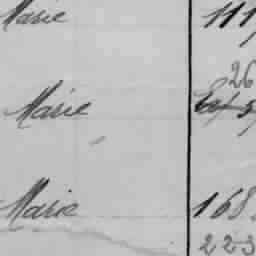 Marie 111
26
Marie
Marie 168
223